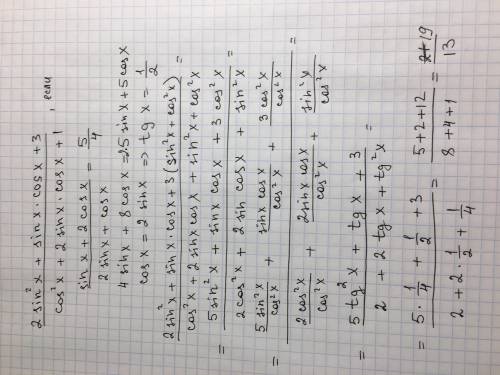 2sin²x + sinx · cosx + 3
cos²x + 2sinx · cosx + 1 , если
sinx + 2cosx / 2sinx + cosx = 5/4
4sinx + 8cosx = 25sinx + 5cosx
cosx = 2sinx => tgx = 1/2
2sin²x + sinx·cosx + 3(sin²x + cos²x) / cos²x + 2sinxcosx + sin²x + cos²x =
= 5sin²x + sinxcosx + 3cos²x / 2cos²x + 2sincosx + sin²x =
= 5sin²x/cos²x + sinxcosx/cos²x + 3cos²x/cos²x
2cos²x/cos²x + 2sinxcosx/cos²x + sin²x/cos²x =
= 5tg²x + tgx + 3 / 2 + 2tgx + tg²x =
= 5·1/4 + 1/2 + 3 / 2 + 2·1/2 + 1/4 = 5+2+12 / 8+4+1 = 19/13